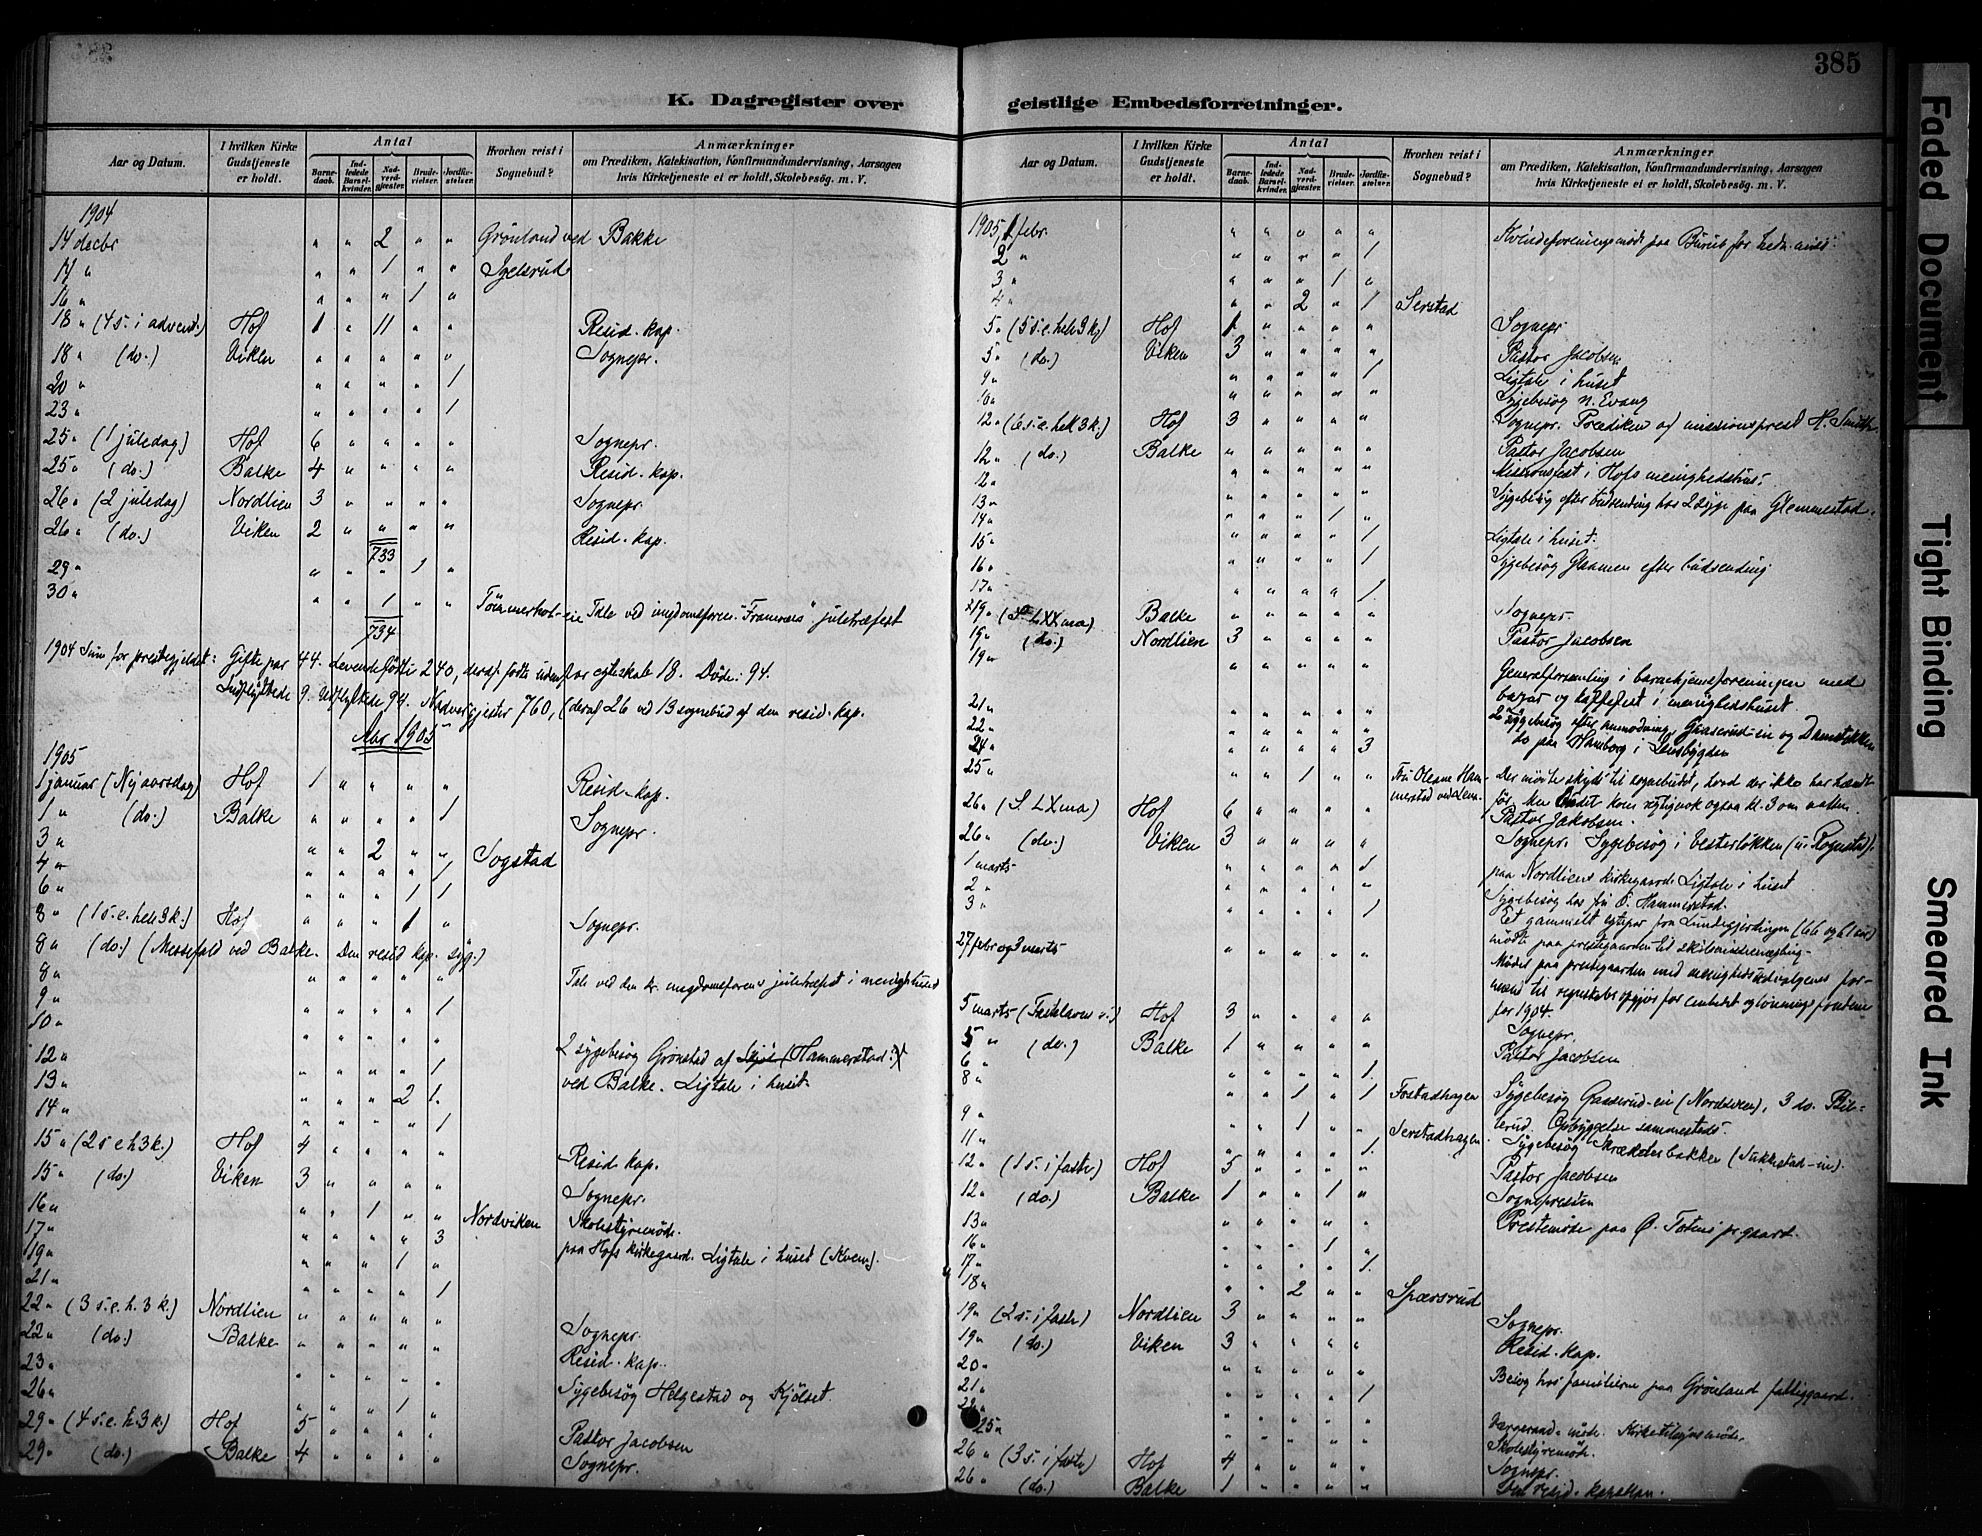 385
K. Dagregister over geistlige Embedsforretninger.
Aar og Datum. I hvilken Kirke Gudstjeneste er holdt. Antal Barnedaab. Indledede Barselkvinder. Nadverdgjester. Brudevielser. Jordfæstelser. Hvorhen reist i Sognebud? Anmærkninger om Prædiken, Katekisation, Konfirmandundervisning, Aarsagen hvis Kirketjeneste ei er holdt, Skolebesög. m. V.
1904
14 decbr " " 2 " " Grönland ved Balke
" " 1 " "
16 " " " " 1 "
18 " (4 s. i advent.) Hof 1 " 11 " " Resid. kap.
18 " (do.) Viken " " " " " Sognepr.
20 " " " " " 1
23 " " " " " 1
25 " (1 juledag) Hof 6 " " " " Sognepr.
25 " (do.) Balke 4 " " " " Resid. kap.
26 " (2 juledag) Nordlien 3 " " " " Sognepr.
26 " (do.) Viken 2 " " " " Resid. kap.
733
29 " " " " 1 "
30 " " " 1 " " Tale ved juletræfest
734
1904 Sum for prestegjeldet: Gifte par 44. Levende födte 240, deraf födte udenfor egteskab 18. Döde: 94.
Indflyttede 9. Udflyttede 94. Nadvergjester 760, (deraf 26 ved 13 sognebud af den resid. kap.
Aar 1905
1905
1 januar (Nyaarsdag) Hof 1 " " " " Resid. kap.
1 " (do.) Balke " " " " 1 Sognepr.
3 " " " 2 " " Sogstad
4 " " " " " 1
6 " " " " 1 1
8 " (1 s. e. hel. 3 k.) Hof " " " 1 " Sognepr.
8 " (do.) (Messefald ved Balke. Den resid. kap. syg.)
8 " " " " " " Tale ved den juletræfest i
9 " " " " " 1
10 " " " " " "
2 sygebesög Grönstad af (Hammerstad)
12 " " " " " 1 ved Balke. Ligtale i huset
13 " " " " 2 1
14 " " " " " 1
15 " (2 s e h. 3 k.) Hof 4 " " " " Resid. kap.
15 " (do.) Viken 3 " " " " Sognepr.
16 " " " 1 " " Nordviken Skolestyremöde.
17 " " " " " 3 paa Hofs kirkegaard. Ligtale i huset (Kvem).
19 " " " " 1 "
21 " " " " " 1
22 " (3 s. e. h. 3 k.) Nordlien " " " " " Sognepr.
22 " (do.) Balke " " " " " Resid. kap.
23 " " " " " " Sygebesög Helgestad og Kjölset
26 " " " " 1 "
29 " (4 s. e. h. 3 k.) Hof 5 " " " " Pastor Jacobsen
29 " (do.) Balke 4 " " " " Sognepr.
Aar og Datum. I hvilken Kirke Gudstjeneste er holdt. Antal Barnedaab. Indledede Barselkvinder. Nadverdgjester. Brudevielser. Jordfæstelser. Hvorhen reist i Sognebud? Anmærkninger om Prædiken, Katekisation, Konfirmandundervisning, Aarsagen hvis Kirketjeneste ei er holdt, Skolebesög. m. V.
1905 1 febr. " " " " " Kvindeforeningsmöde paa for
2 " " " " " 1
3 " " " " 1 "
4 " " " 2 " 1 Serstad
5 " (5 s. e. hel. 3 k) Hof 1 " " " " Sognepr.
5 " (do.) Viken 3 " " " " Pastor Jacobsen
9 " " " " " 1 Ligtale i huset
10 " " " " " " Sygebesög n. Evang
12 " (6 s. e. hell. 3 k.) Hof 3 " " " " Sognepr. Prædiken af missionsprest H. Smith
12 " (do.) Balke " " " " " Pastor Jacobsen
12 " " " " " " Missionsfest i Hofs menighedshus.
13 " " " " " " Sygebesög efter budsending hos 2 syge paa Glemmestad.
14 " " " " 1 "
15 " " " " " 1 Ligtale i huset.
16 " " " " " 1 Sygebesög efter budsending
17 " " " " " 1
19 " (S. LXX ma) Balke " " " " " Sognepr.
19 " (do.) Nordlien 3 " " " " Pastor Jacobsen
19 " " " " " " Generalforsamling i barnehjemsforeningen med
bazar og kaffefest i menighedshuset.
21 " " " " " "
22 " " " " " " 2 sygebesög efter anmodning, og
24 " " " " " 3 do paa Hamborg i
25 " " " 1 " " Fru Oleane Hammerstad ved Lena. Der til sognebudet, hvad der ikke har hændt
för. Men budet kom kl. 3 om natten.
26 " (S. LX ma) Hof 6 " " " " Pastor Jakobsen.
26 " (do.) Viken 3 " " " " Sognepr. Sygebesög i Vesterlökken (u. Rognstad).
1 marts " " " " 1 paa Nordliens kirkegaard. Ligtale i huset
2 " " " " " " Sygebesög hos fru O. Hammerstad.
3 " " " " " 1 Et gammelt egtepar fra (66 og 61 aar)
mödte paa prestegaarden til
27 febr og 3 marts " " " " " Möder paa prestegaarden med menighedsudvalgenes
til regnskabsopgjör for embedet og
for 1904.
5 marts (Fastelavns s.) Hof 3 " " " " Sognepr.
5 " (do.) Balke 1 " " " " Pastor Jacobsen
6 " " " " " 1
8 " " " 1 " 1 Fostadhagen Sygebesög Gaaserud-eie (Nordlien), 3 do.
9 " " " 1 " " Serstadhagen. Opbyggelse sammesteds.
11 " " " " " 1 Sygebesög Skrædderbakken
12 " (1 s. i faste) Hof 5 " " " " Pastor Jacobsen
12 " (do.) Balke 1 " " 1 " Sognepresten
13 " " " " " " Prestemöde paa Ö. Totens pr.gaard.
16 " " " " 1 "
17 " " " " " 1
18 " " " 2 " " Spærsrud
19 " (2 s. i faste) Nordlien 3 " " " " Sognepr.
19 " (do.) Viken 3 " " " " Resid. kap.
20 " " " " " " Besög hos familierne paa Grönland fattiggaard.
21 " " " " " 1
22 " " " " " " Værgeraad-möde. Kirketilsynsmöde.
25 " " " " " " Skolestyremöde.
26 " (3 s. i faste) Hof 4 " " " " Sognepr.
26 " (do.) Balke 1 " " " " Den resid. kapellan.
Faded Document
Tight Binding
Smeared Ink